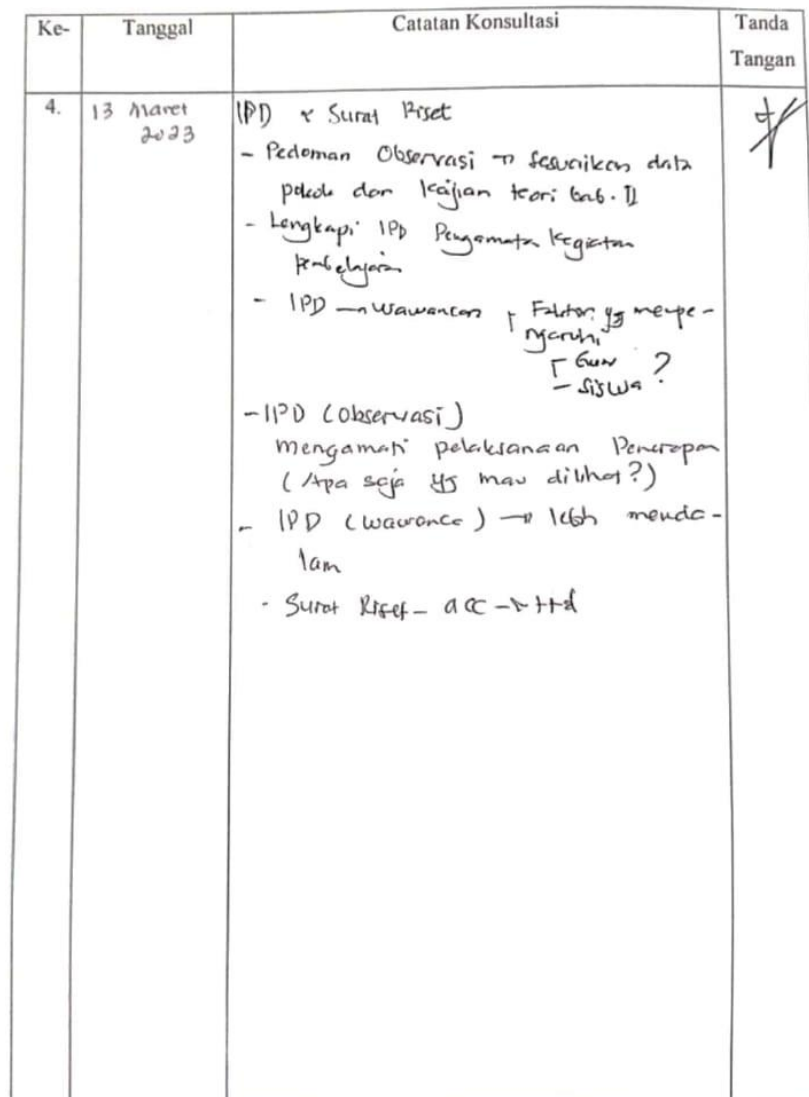 Ke- Tanggal Catatan Konsultasi Tanda
Tangan
4. 13 Maret
2023
IPD & Surat Riset
- Pedoman Observasi → sesuaikan data
pokok dan kajian teori bab. II
- Lengkapi IPD Pengamatan Kegiatan
pembelajaran
- IPD → Wawancara Faktor yg mempe-
ngaruhi
Guru
- Siswa ?
- IPD (Observasi)
mengamati pelaksanaan Penerapan
(Apa saja yg mau dilihat?)
- IPD (wawancara) → lebih menda-
lam
- Surat Riset - acc → ttd